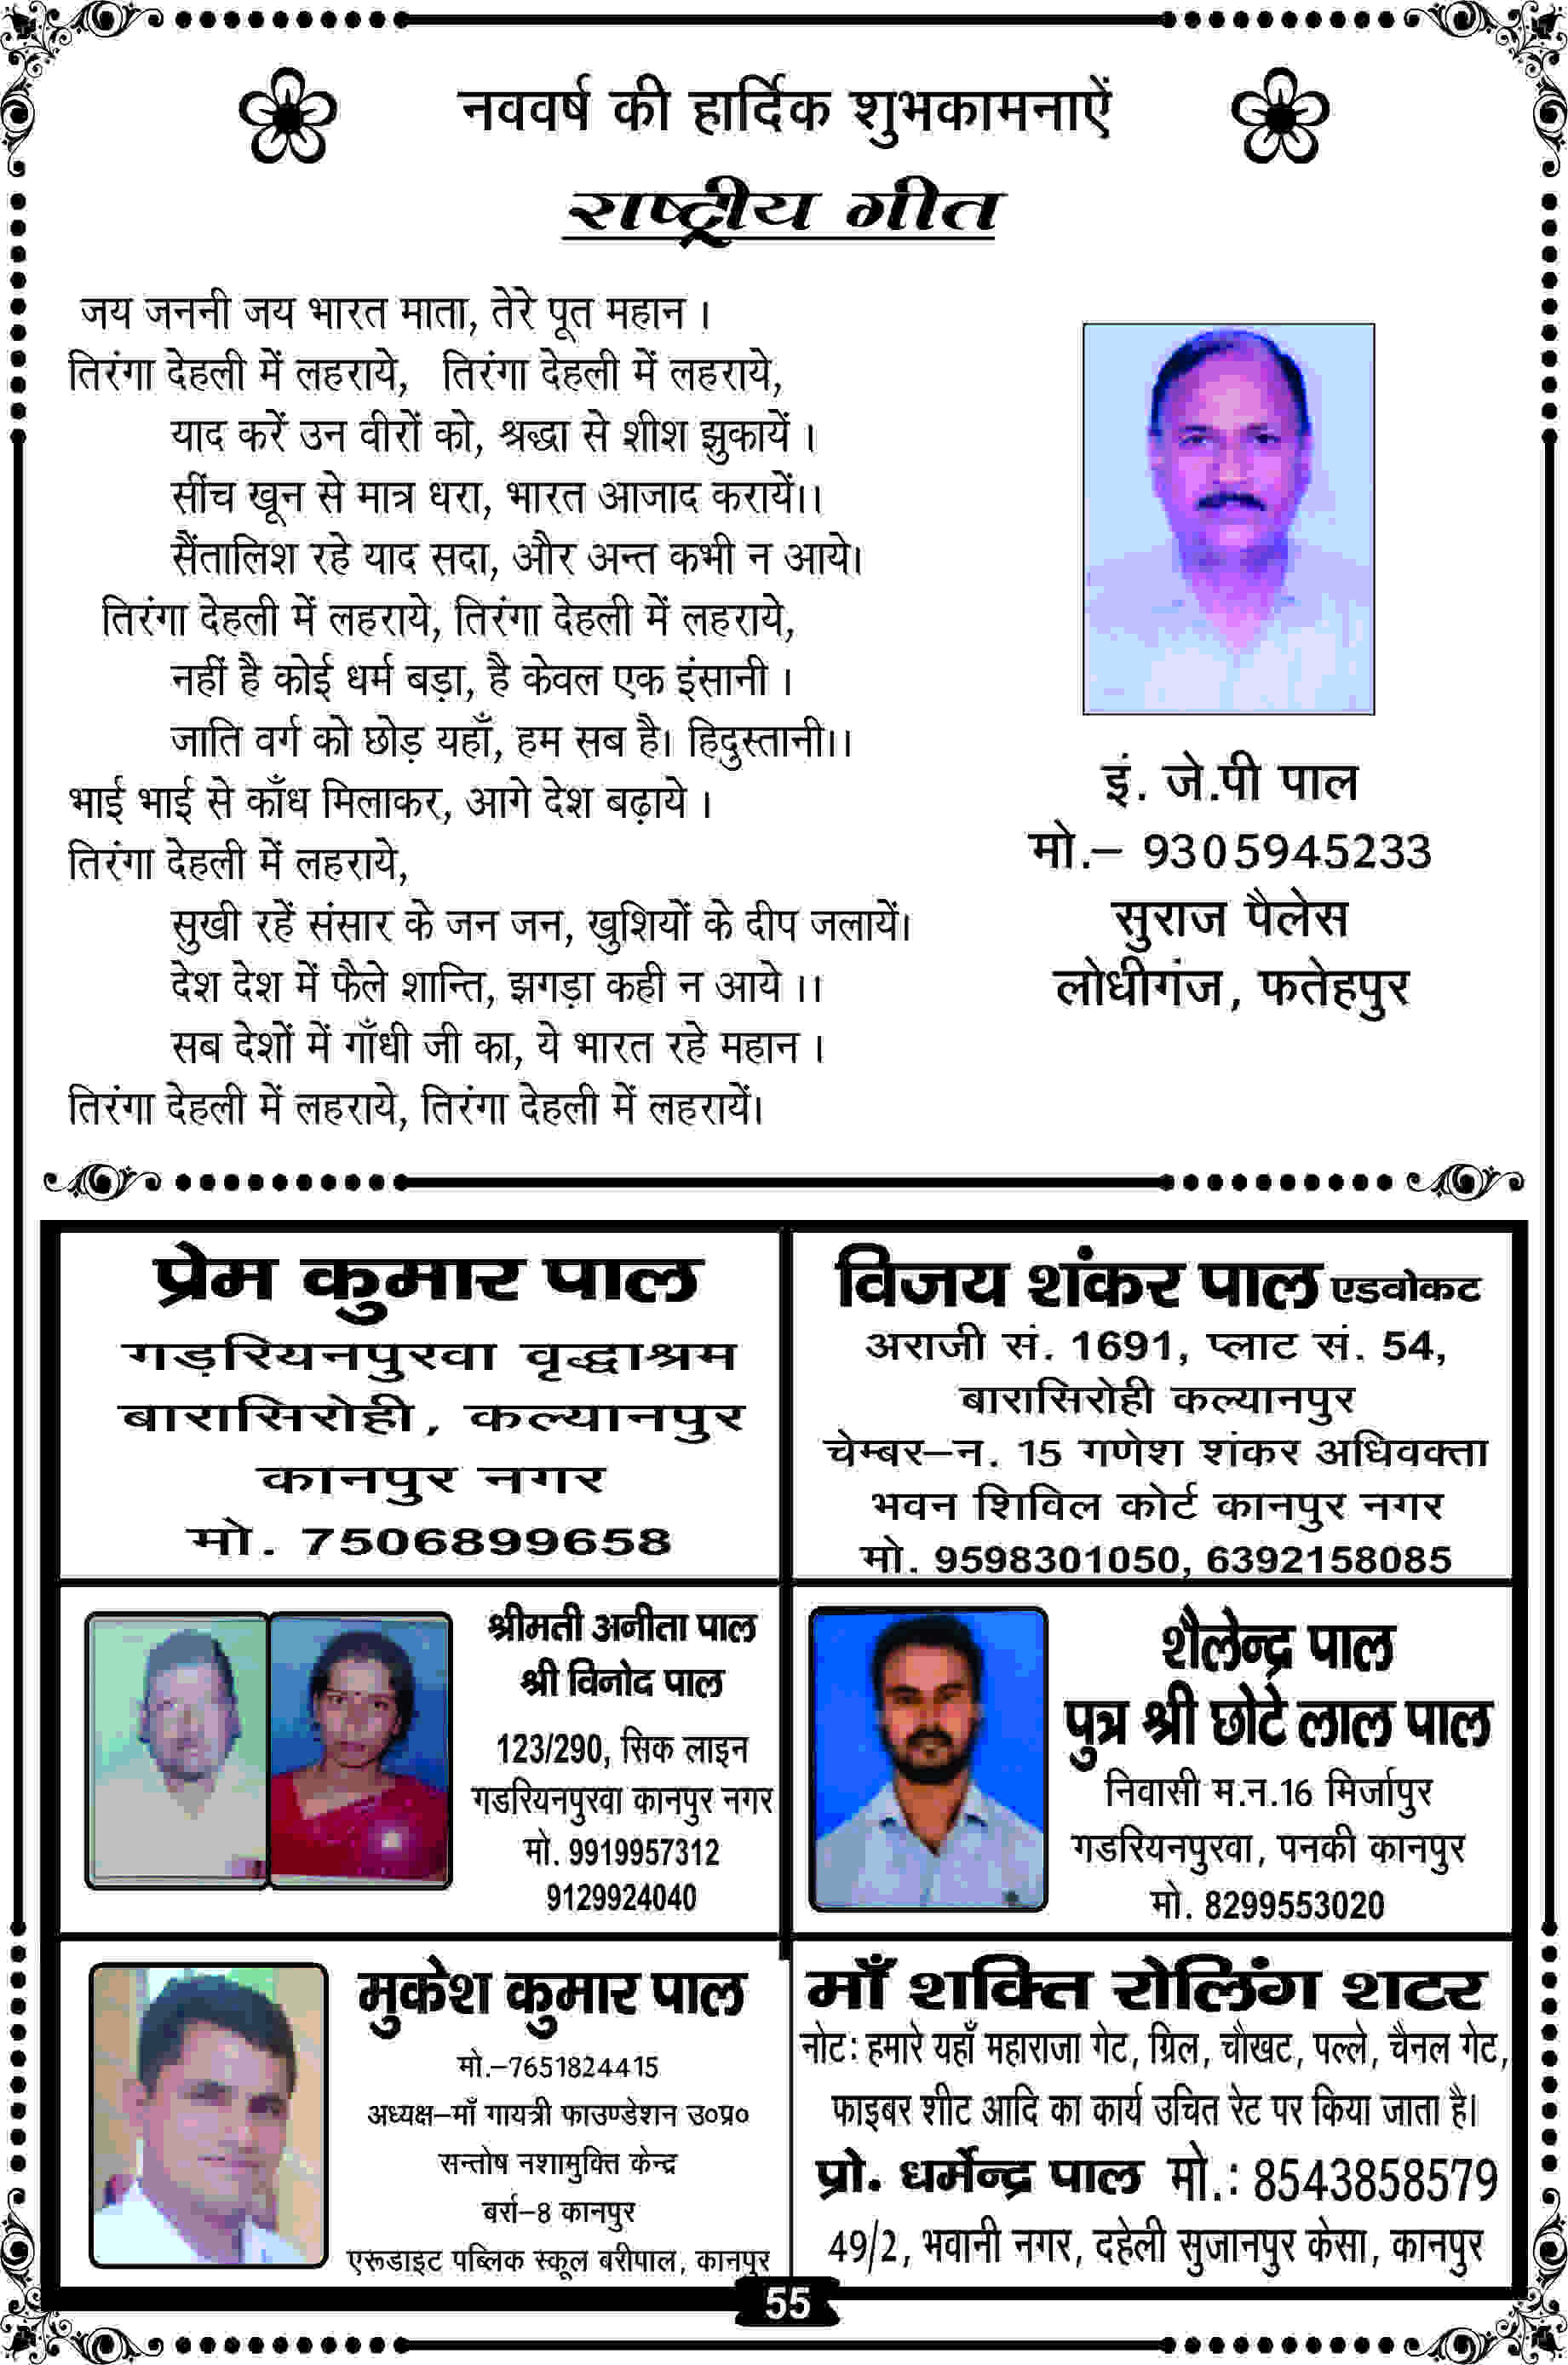 नववर्ष की हार्दिक शुभकामनाऐं
राष्ट्रीय गीत
जय जननी जय भारत माता, तेरे पूत महान ।
तिरंगा देहली में लहराये, तिरंगा देहली में लहराये,
याद करें उन वीरों को, श्रद्धा से शीश झुकायें ।
सींच खून से मात्र धरा, भारत आजाद करायें।।
सैंतालिश रहे याद सदा, और अन्त कभी न आये।
तिरंगा देहली में लहराये, तिरंगा देहली में लहराये,
नहीं है कोई धर्म बड़ा, है केवल एक इंसानी ।
जाति वर्ग को छोड़ यहाँ, हम सब है। हिदुस्तानी।।
भाई भाई से काँध मिलाकर, आगे देश बढ़ाये ।
तिरंगा देहली में लहराये,
सुखी रहें संसार के जन जन, खुशियों के दीप जलायें।
देश देश में फैले शान्ति, झगड़ा कही न आये ।।
सब देशों में गाँधी जी का, ये भारत रहे महान ।
तिरंगा देहली में लहराये, तिरंगा देहली में लहरायें।
इं. जे.पी पाल
मो.– 9305945233
सुराज पैलेस
लोधीगंज, फतेहपुर
प्रेम कुमार पाल
गड़रियनपुरवा वृद्धाश्रम
बारासिरोही, कल्यानपुर
कानपुर नगर
मो. 7506899658
विजय शंकर पाल एडवोकट
अराजी सं. 1691, प्लाट सं. 54,
बारासिरोही कल्यानपुर
चेम्बर–न. 15 गणेश शंकर अधिवक्ता
भवन शिविल कोर्ट कानपुर नगर
मो. 9598301050, 6392158085
श्रीमती अनीता पाल
श्री विनोद पाल
123/290, सिक लाइन
गडरियनपुरवा कानपुर नगर
मो. 9919957312
9129924040
शैलेन्द्र पाल
पुत्र श्री छोटे लाल पाल
निवासी म.न.16 मिर्जापुर
गडरियनपुरवा, पनकी कानपुर
मो. 8299553020
मुकेश कुमार पाल
मो.–7651824415
अध्यक्ष–माँ गायत्री फाउण्डेशन उ०प्र०
सन्तोष नशामुक्ति केन्द्र
बर्रा–8 कानपुर
एरूडाइट पब्लिक स्कूल बरीपाल, कानपुर
माँ शक्ति रोलिंग शटर
नोट: हमारे यहाँ महाराजा गेट, ग्रिल, चौखट, पल्ले, चैनल गेट,
फाइबर शीट आदि का कार्य उचित रेट पर किया जाता है।
प्रो. धर्मेन्द्र पाल मो.: 8543858579
49/2, भवानी नगर, दहेली सुजानपुर केसा, कानपुर
55